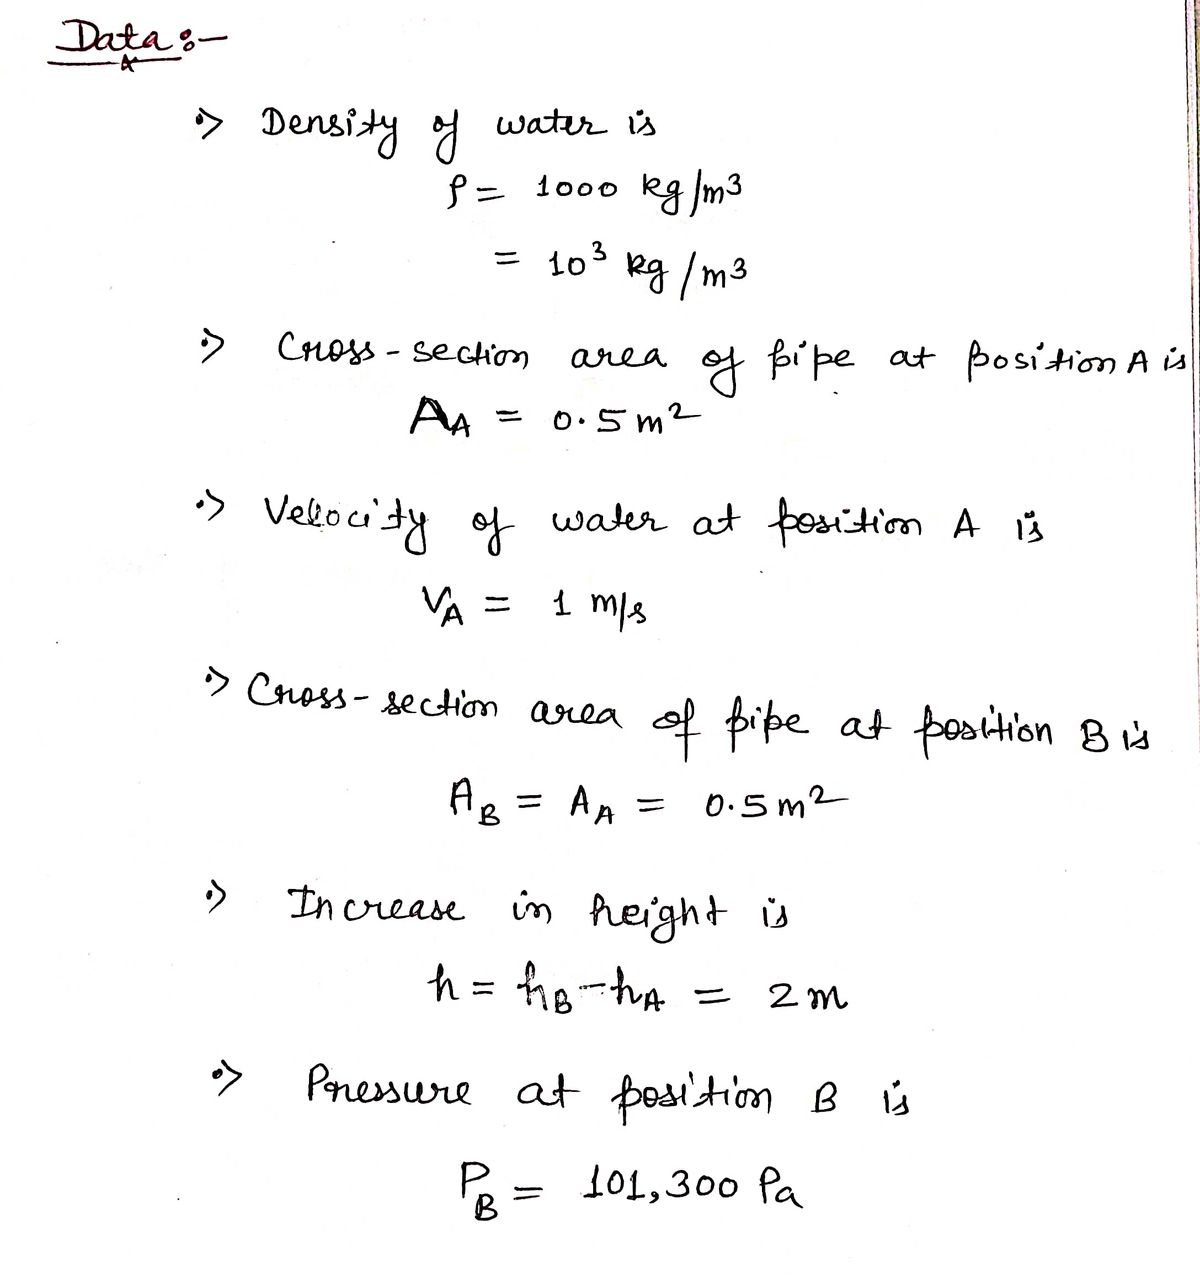 Data :-
•> Density of water is
ρ = 1000 kg/m3
= 10³ kg/m3
•> Cross-section area of pipe at position A is
A_A = 0.5 m²
•> Velocity of water at position A is
V_A = 1 m/s
•> Cross-section area of pipe at position B is
A_B = A_A = 0.5 m²
•> Increase in height is
h = h_B - h_A = 2 m
•> Pressure at position B is
P_B = 101,300 Pa